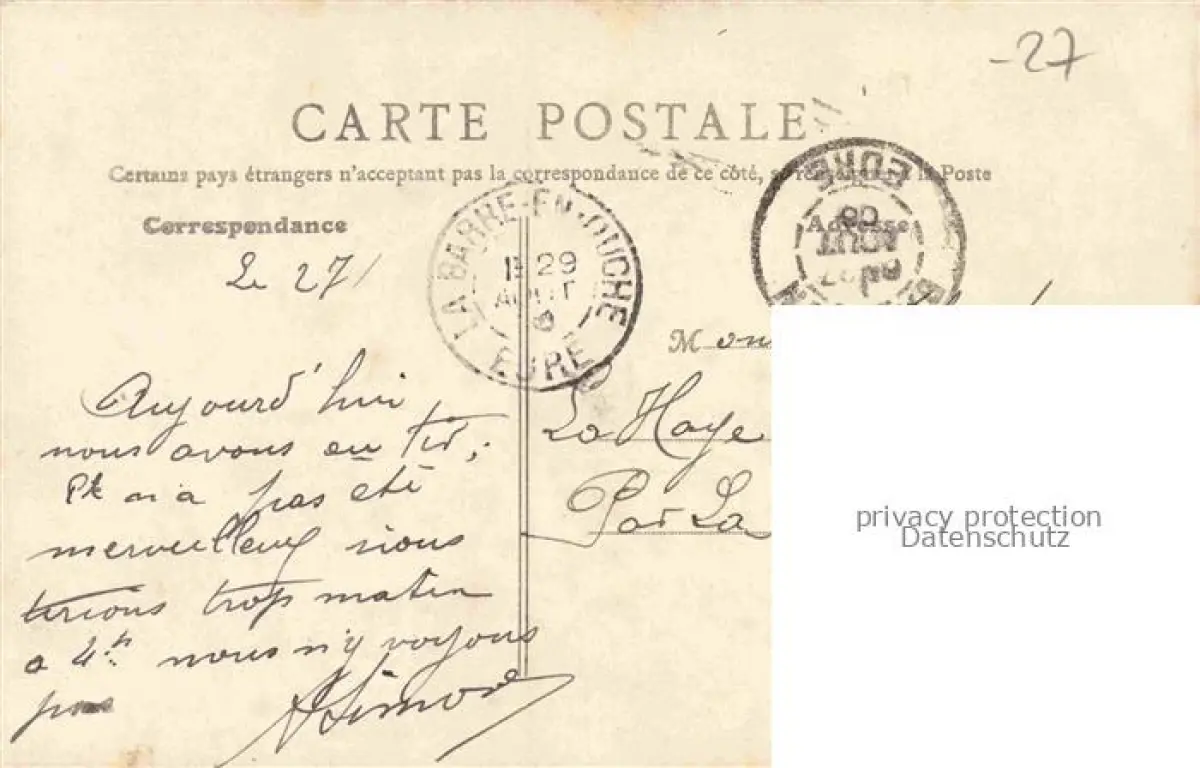 -27
CARTE POSTALE
Certains pays étrangers n'acceptant pas la correspondance de ce côté, se renseigner à la Poste
Correspondance
Adresse
LA BARRE-EN-OUCHE
29
AOUT
EURE
EURE
08
AOUT
Le 27
M on
La Haye
Par La
Aujourd'hui
nous avons eu tir,
n'a pas été
merveilleux nous
tirions trop matin
a 4h nous n'y voyons
pas
privacy protection
Datenschutz